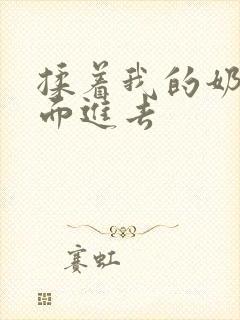 揉着我的奶
而進去
赛虹